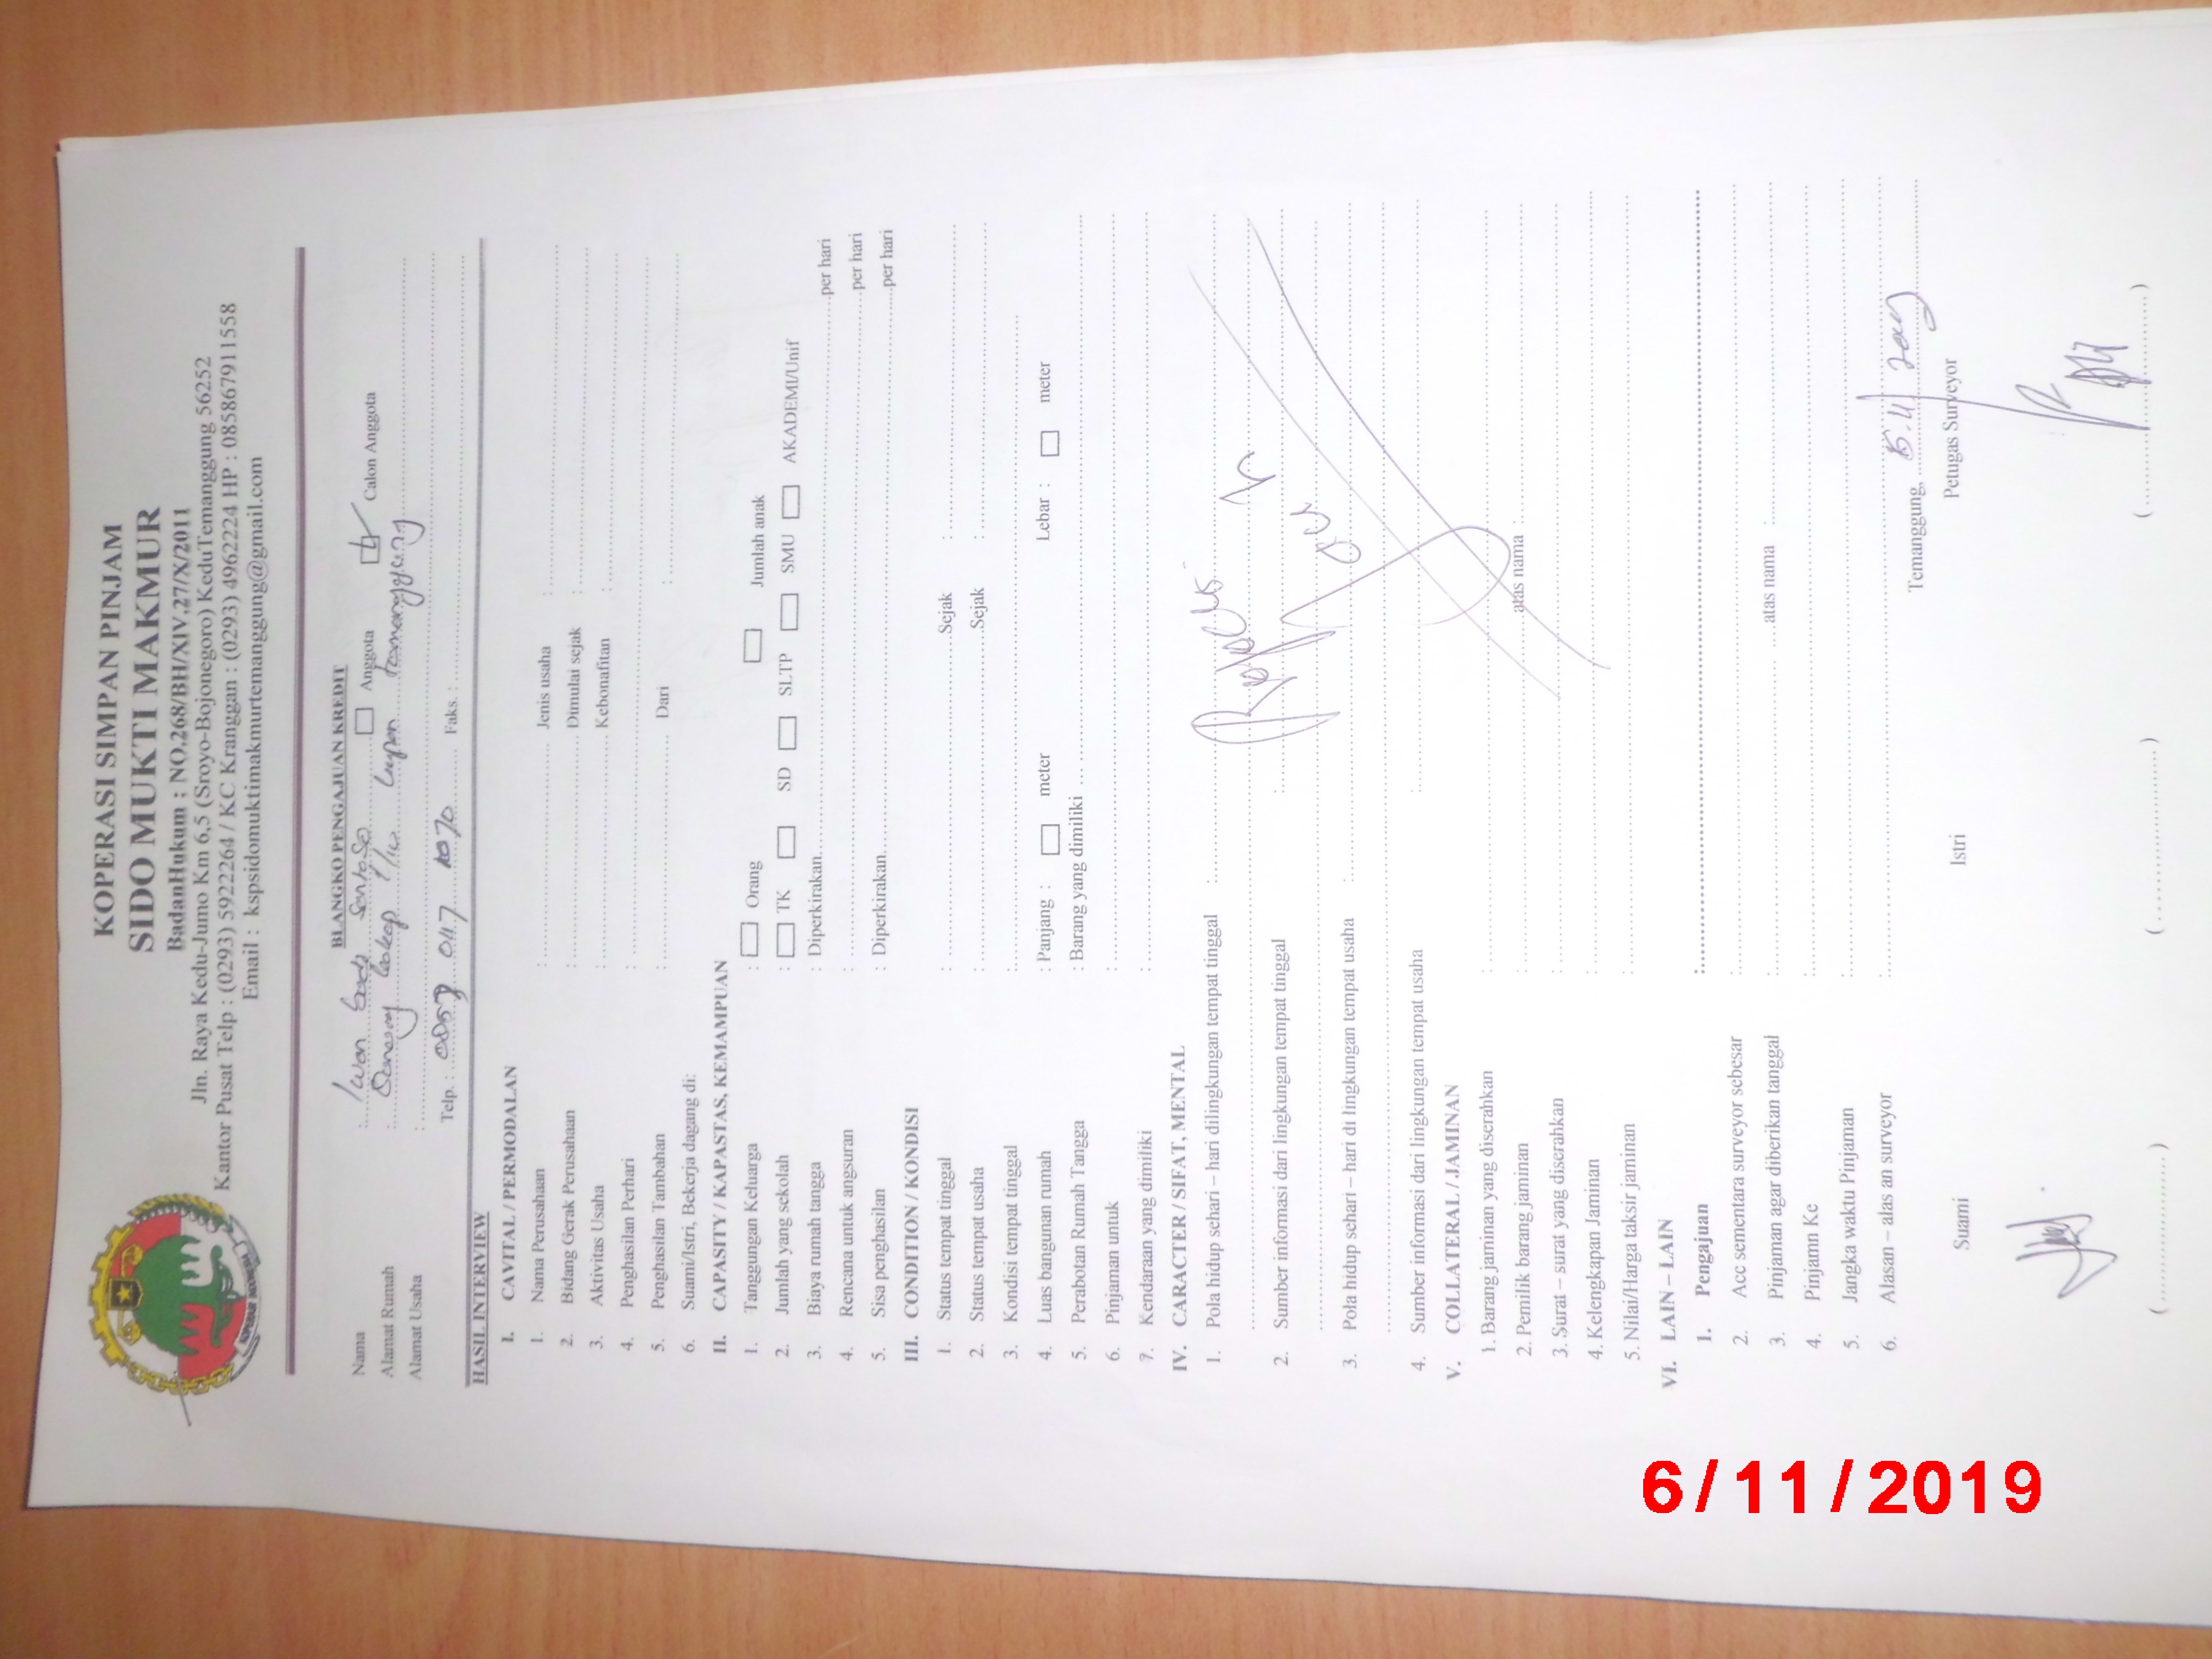 KOPERASI SIMPAN PINJAM
SIDO MUKTI MAKMUR
BadanHukum : NO.268/BH/XIV.27/X/2011
Jln. Raya Kedu-Jumo Km 6,5 (Sroyo-Bojonegoro) KeduTemanggung 56252
Kantor Pusat Telp : (0293) 5922264 / KC Kranggan : (0293) 4962224 HP : 085867911558
Email : kspsidomuktimakmurtemanggung@gmail.com
BLANGKO PENGAJUAN KREDIT
Nama : Iwan Santoso Anggota Calon Anggota
Alamat Rumah : Temanggung
Alamat Usaha :
Telp. : 0117 1070 Faks. :
HASIL INTERVIEW
I. CAVITAL / PERMODALAN
1. Nama Perusahaan : Jenis usaha :
2. Bidang Gerak Perusahaan : Dimulai sejak :
3. Aktivitas Usaha : Kebonafitan :
4. Penghasilan Perhari :
5. Penghasilan Tambahan : Dari :
6. Suami/Istri, Bekerja dagang di:
II. CAPASITY / KAPASTAS, KEMAMPUAN
1. Tanggungan Keluarga : Orang Jumlah anak
2. Jumlah yang sekolah : TK SD SLTP SMU AKADEMI/Unif
3. Biaya rumah tangga : Diperkirakan per hari
4. Rencana untuk angsuran : per hari
5. Sisa penghasilan : Diperkirakan per hari
III. CONDITION / KONDISI
1. Status tempat tinggal : Sejak :
2. Status tempat usaha : Sejak :
3. Kondisi tempat tinggal :
4. Luas bangunan rumah : Panjang : meter Lebar : meter
5. Perabotan Rumah Tangga : Barang yang dimiliki
6. Pinjaman untuk :
7. Kendaraan yang dimiliki :
IV. CARACTER / SIFAT, MENTAL
1. Pola hidup sehari – hari dilingkungan tempat tinggal :
2. Sumber informasi dari lingkungan tempat tinggal :
3. Pola hidup sehari – hari di lingkungan tempat usaha :
4. Sumber informasi dari lingkungan tempat usaha :
V. COLLATERAL / JAMINAN
1. Barang jaminan yang diserahkan :
2. Pemilik barang jaminan : atas nama :
3. Surat – surat yang diserahkan :
4. Kelengkapan Jaminan :
5. Nilai/Harga taksir jaminan :
VI. LAIN – LAIN
1. Pengajuan :
2. Acc sementara surveyor sebesar :
3. Pinjaman agar diberikan tanggal : atas nama :
4. Pinjamn Ke :
5. Jangka waktu Pinjaman :
6. Alasan – alas an surveyor :
Temanggung,
Suami Istri Petugas Surveyor
6/11/2019